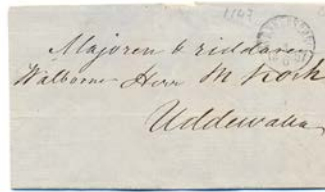 1143
Majoren & riddaren
Walborne Herr M Koch
Uddewalla